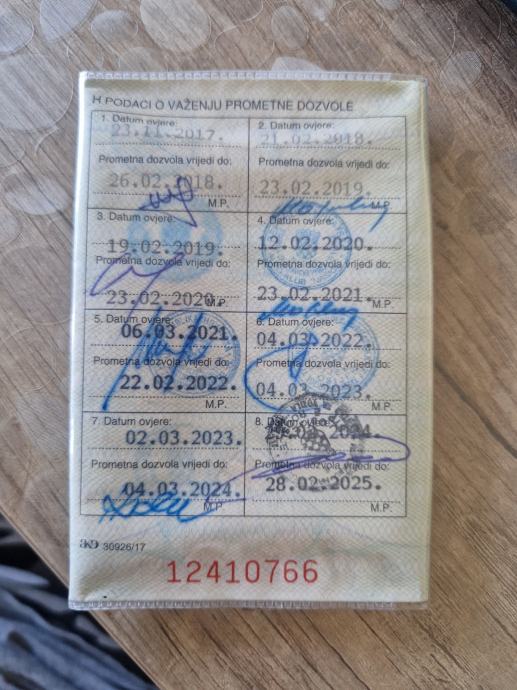 H PODACI O VAŽENJU PROMETNE DOZVOLE
1. Datum ovjere:
23.11.2017.
Prometna dozvola vrijedi do:
26.02.2018.
M.P.
2. Datum ovjere:
21.02.2018.
Prometna dozvola vrijedi do:
23.02.2019.
3. Datum ovjere:
19.02.2019.
Prometna dozvola vrijedi do:
23.02.2020.
M.P.
4. Datum ovjere:
12.02.2020.
Prometna dozvola vrijedi do:
23.02.2021.
M.P.
5. Datum ovjere:
06.03.2021.
Prometna dozvola vrijedi do:
22.02.2022.
M.P.
6. Datum ovjere:
04.03.2022.
Prometna dozvola vrijedi do:
04.03.2023.
M.P.
7. Datum ovjere:
02.03.2023.
Prometna dozvola vrijedi do:
04.03.2024.
M.P.
8. Datum ovjere:
Prometna dozvola vrijedi do:
28.02.2025.
M.P.
AKD 30926/17
12410766